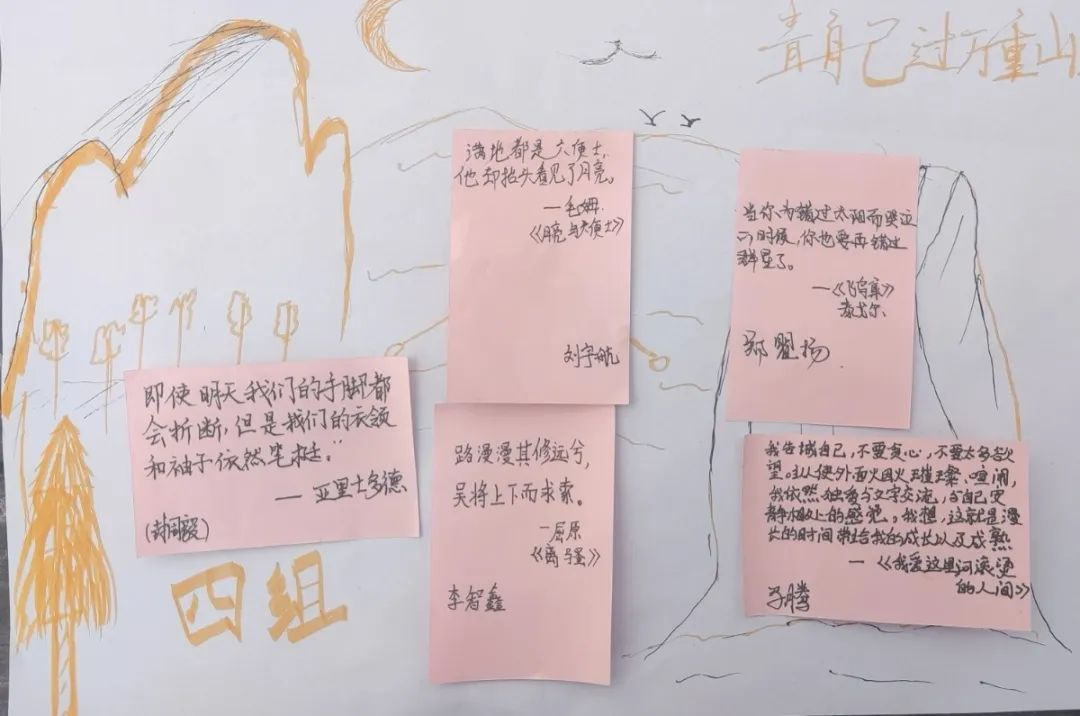 青舟已过万重山
满地都是六便士,
他却抬头看见了月亮。
—毛姆.
《月亮与六便士》
刘宇航
当你为错过太阳而哭泣
的时候,你也要再错过
群星了。
—《飞鸟集》
泰戈尔
郑盟扬
即使明天我们的手脚都
会折断,但是我们的衣领
和袖子依然笔挺."
— 亚里士多德
路漫漫其修远兮,
吴将上下而求索。
—屈原
《离骚》
李智鑫
我告诫自己,不要贪心,不要太多欲
望。纵使外面火树火璀璨、喧闹,
我依然独自与文字交流,与自己安
静极处的感觉。我想,这就是漫
长的时间带给我的成长以及成熟
— 《我爱这里河滚烫
的人间》
四组